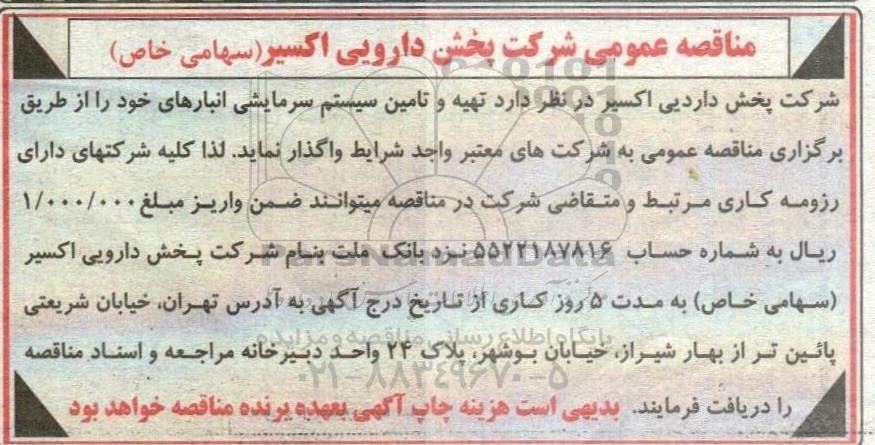 مناقصه عمومی شرکت پخش دارویی اکسیر (سهامی خاص)
شرکت پخش داردیی اکسیر در نظر دارد تهیه و تامین سیستم سرمایشی انبارهای خود را از طریق
برگزاری مناقصه عمومی به شرکت های معتبر واجد شرایط واگذار نماید. لذا کلیه شرکتهای دارای
رزومه کاری مرتبط و متقاضی شرکت در مناقصه میتوانند ضمن واریز مبلغ ۱/۰۰۰/۰۰۰
ریال به شماره حساب ۵۵۲۲۱۸۷۸۱۶ نزد بانک ملت بنام شرکت پخش دارویی اکسیر
ParsNamadData
(سهامی خاص) به مدت ۵ روز کاری از تاریخ درج آگهی به آدرس تهران، خیابان شریعتی
پایگاه اطلاع رسانی مناقصه و مزایده
پائین تر از بهار شیراز، خیابان بوشهر، پلاک ۲۴ واحد دبیرخانه مراجعه و اسناد مناقصه
۰۲۱-۸۸۳۴۹۶۷۰-۵
را دریافت فرمایند. بدیهی است هزینه چاپ آگهی بعهده برنده مناقصه خواهد بود